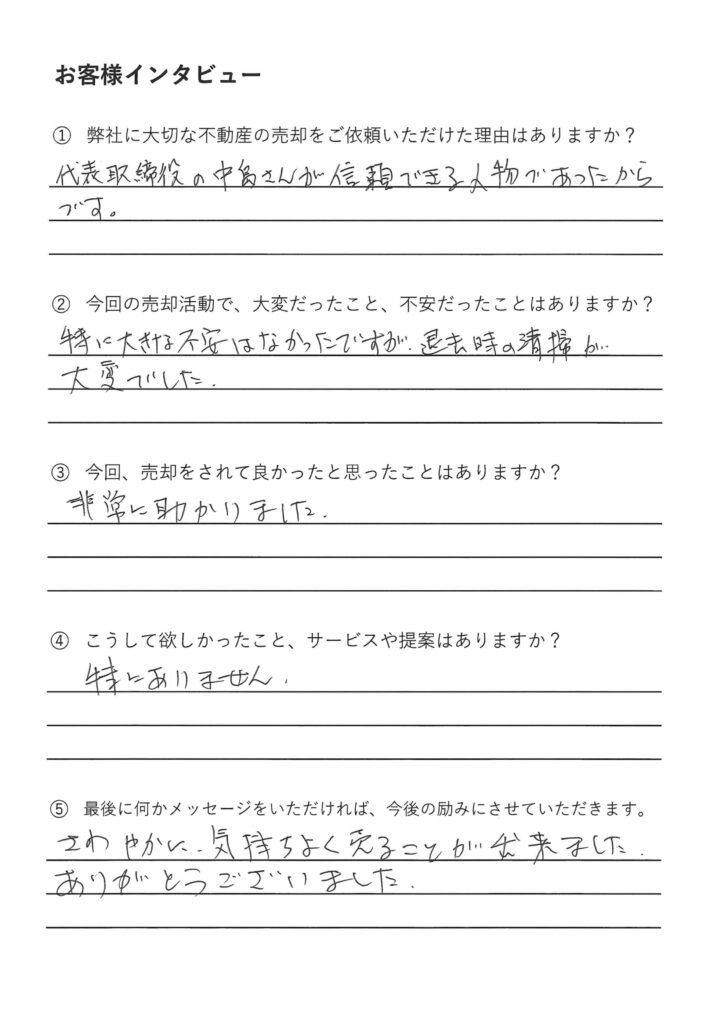 お客様インタビュー
① 弊社に大切な不動産の売却をご依頼いただけた理由はありますか？
代表取締役の中島さんが信頼できる人物であったから
です。
② 今回の売却活動で、大変だったこと、不安だったことはありますか？
特に大きな不安はなかったですが、退去時の清掃が
大変でした。
③ 今回、売却をされて良かったと思ったことはありますか？
非常に助かりました。
④ こうして欲しかったこと、サービスや提案はありますか？
特にありません。
⑤ 最後に何かメッセージをいただければ、今後の励みにさせていただきます。
さわやかに、気持ちよく売ることが出来ました。
ありがとうございました。